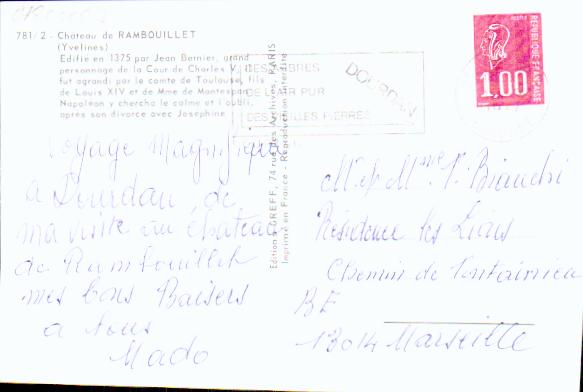 781/2 - Château de RAMBOUILLET
(Yvelines)
Edifié en 1375 par Jean Bernier, grand
personnage de la Cour de Charles V, il
fut agrandi par le comte de Toulouse, fils
de Louis XIV et de Mme de Montespan.
Napoléon y chercha le calme et l'oubli,
après son divorce avec Joséphine
DES ARBRES
DE L'AIR PUR
DES VIEILLES PIERRES
DOURDAN
1,00
REPUBLIQUE FRANÇAISE
Editions GREFF, 74 rue des Archives, PARIS
Imprimé en France - Reproduction interdite
Voyage Magnifique
a Dourdan de
ma visite au château
de Rambouillet
mes bons Baisers
a tous
Mado
M. et Mme Bianchi
Résidence les
Chemin de Fontainieu
BE
13014 Marseille